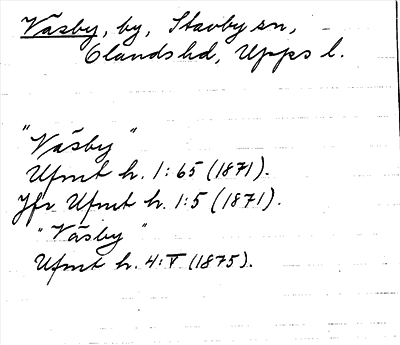 Väsby, by, Stavby sn,
Olands hd, Upps l.
"Väsby"
Ufmt h. 1:65 (1871).
Jfr Ufmt h. 1:5 (1871).
"Väsby"
Ufmt h. 4:V (1875).